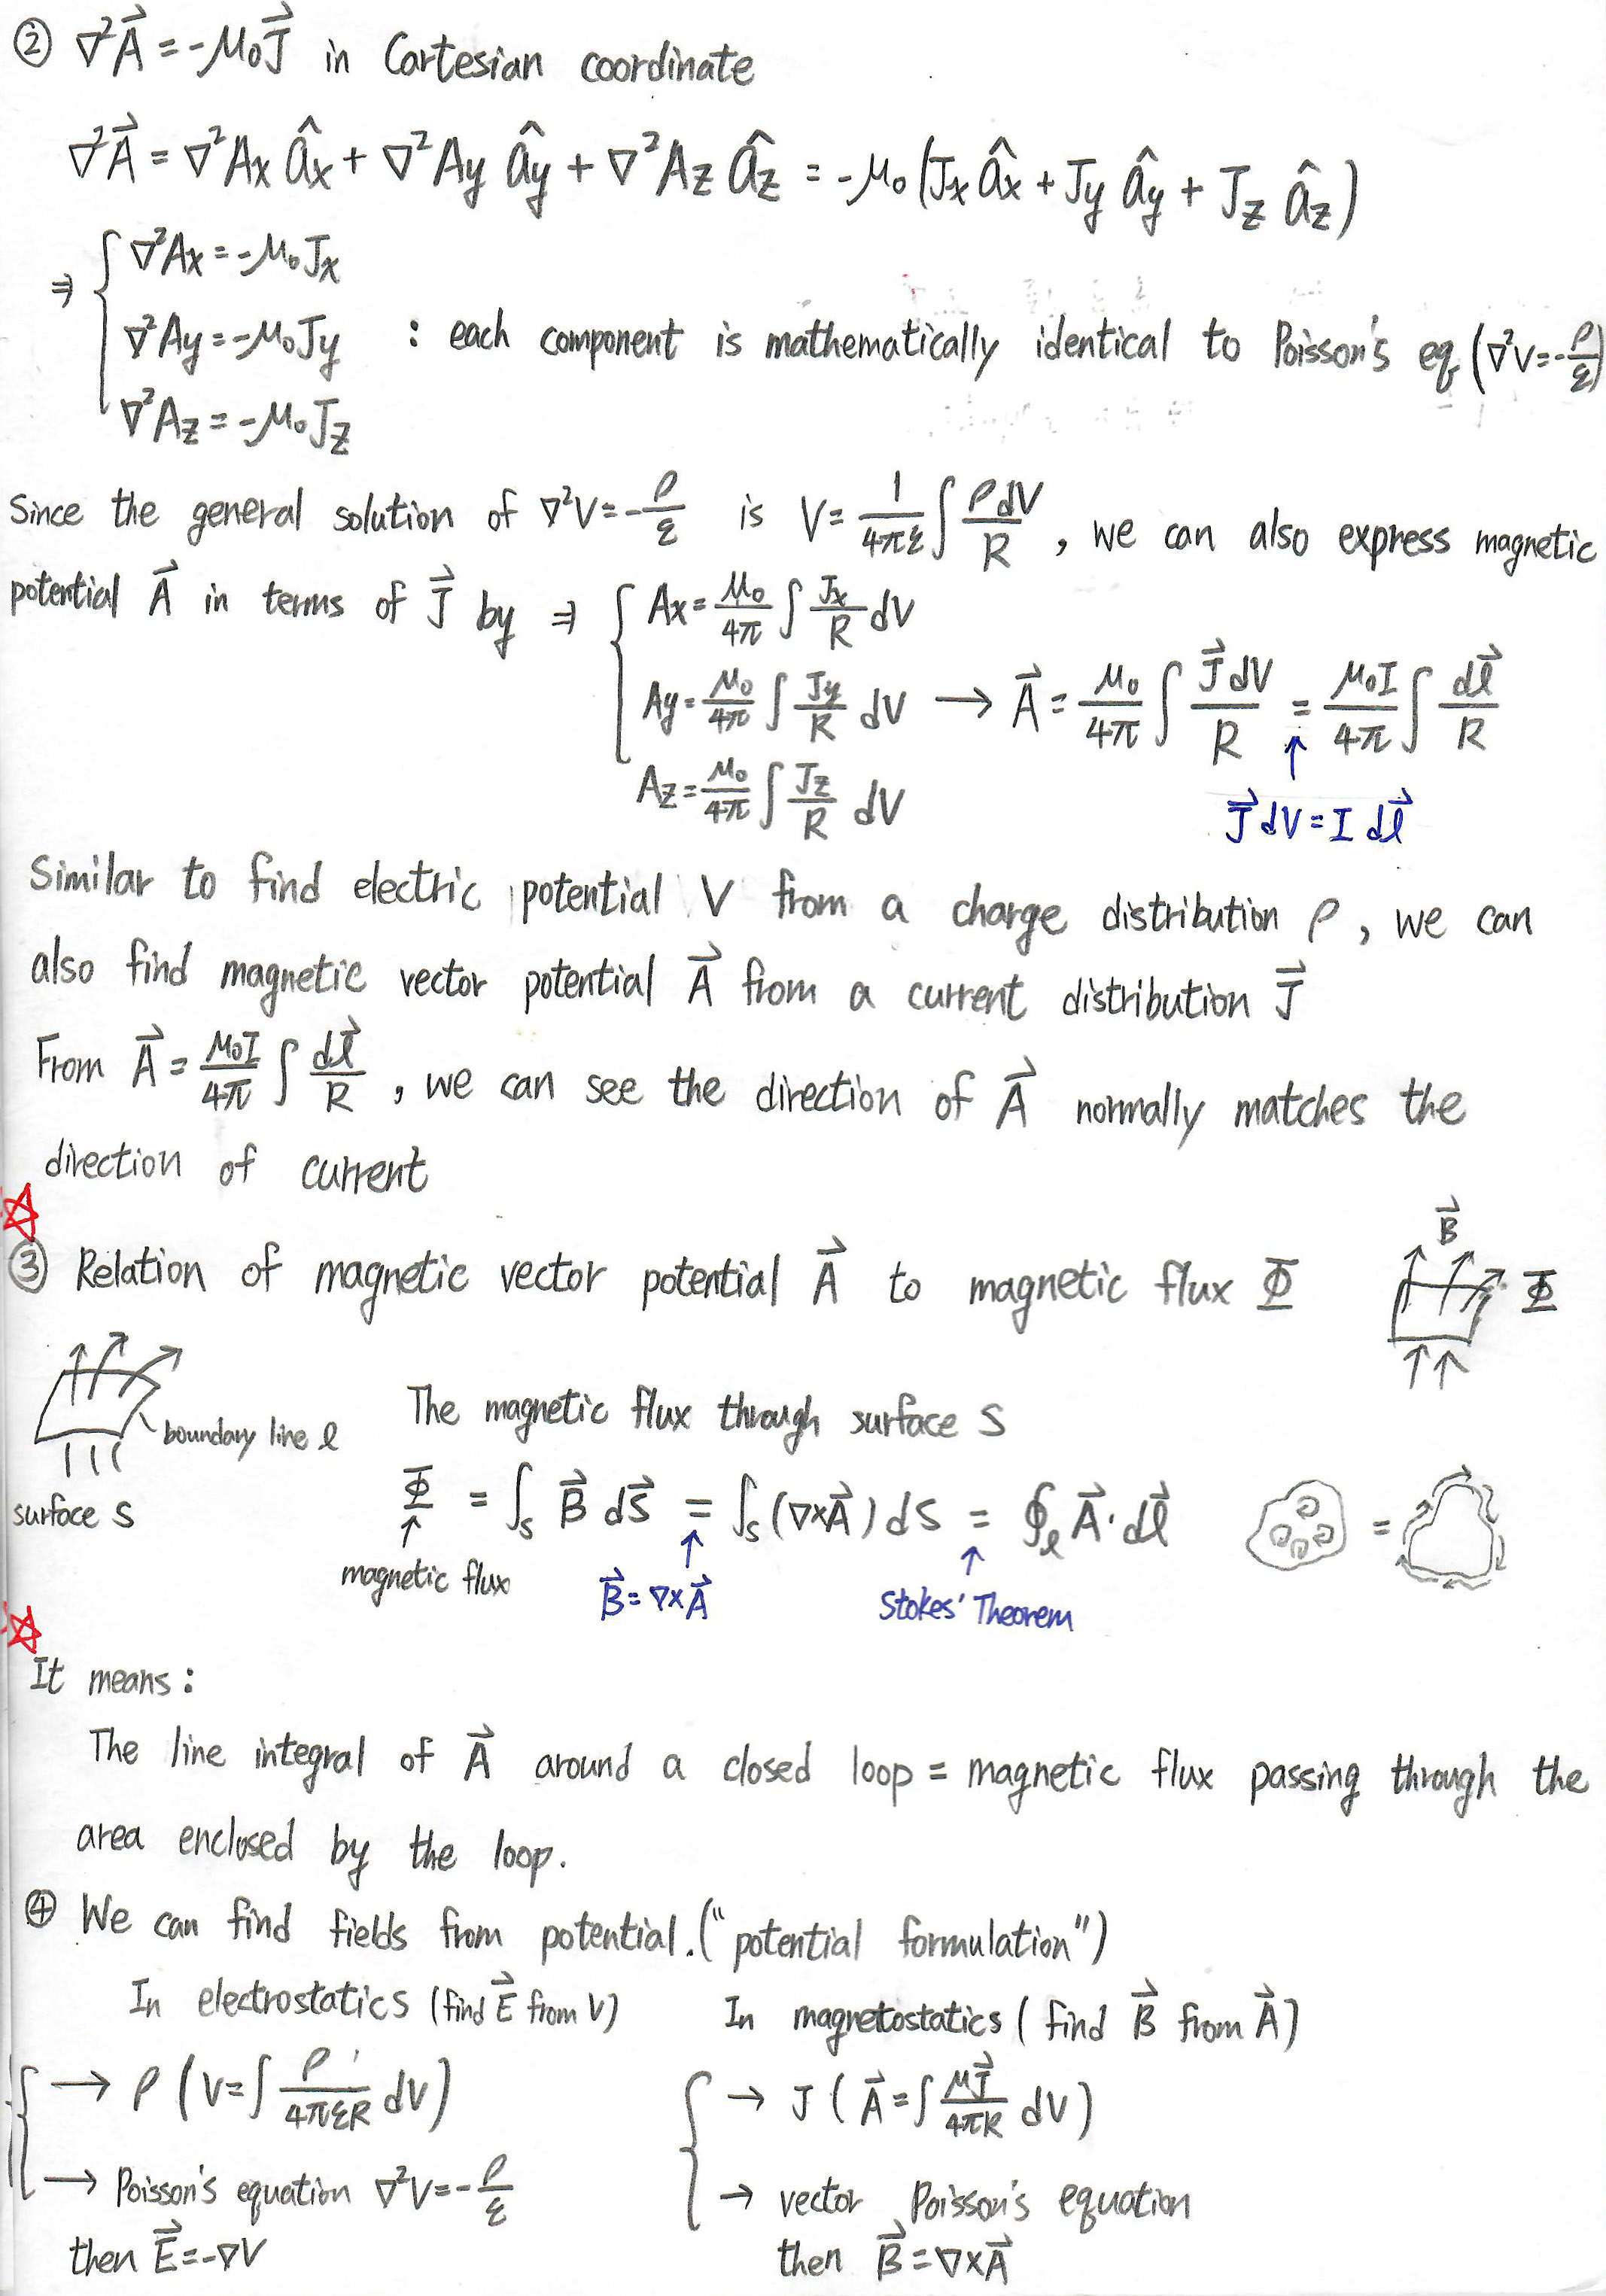 ② ∇²A⃗ = -μ₀J⃗ in Cartesian coordinate
∇²A⃗ = ∇²Ax âx + ∇²Ay ây + ∇²Az âz = -μ₀(Jx âx + Jy ây + Jz âz)
⇒ { ∇²Ax = -μ₀Jx
∇²Ay = -μ₀Jy : each component is mathematically identical to Poisson's eq (∇²V = -ρ/ε)
∇²Az = -μ₀Jz
Since the general solution of ∇²V = -ρ/ε is V = 1/4πε ∫ ρdV/R , we can also express magnetic
potential A⃗ in terms of J⃗ by ⇒ { Ax = μ₀/4π ∫ Jx/R dV
Ay = μ₀/4π ∫ Jy/R dV → A⃗ = μ₀/4π ∫ J⃗dV/R = μ₀I/4π ∫ dl⃗/R
Az = μ₀/4π ∫ Jz/R dV
↑ J⃗dV = I dl⃗
Similar to find electric potential V from a charge distribution ρ, we can
also find magnetic vector potential A⃗ from a current distribution J⃗
From A⃗ = μ₀I/4π ∫ dl⃗/R , we can see the direction of A⃗ normally matches the
direction of current
☆
③ Relation of magnetic vector potential A⃗ to magnetic flux Φ
B⃗
Φ
boundary line l
surface S
The magnetic flux through surface S
Φ = ∫s B⃗ dS⃗ = ∫s (∇×A⃗) dS = ∮l A⃗·dl⃗
=
↑ magnetic flux
↑ B⃗ = ∇×A⃗
↑ Stokes' Theorem
☆
It means:
The line integral of A⃗ around a closed loop = magnetic flux passing through the
area enclosed by the loop.
④ We can find fields from potential. ("potential formulation")
In electrostatics (find E⃗ from V)
{ → ρ (V = ∫ ρ/4πεR dV)
→ Poisson's equation ∇²V = -ρ/ε
then E⃗ = -∇V
In magnetostatics (find B⃗ from A⃗)
{ → J (A⃗ = ∫ μJ⃗/4πR dV)
→ vector Poisson's equation
then B⃗ = ∇×A⃗